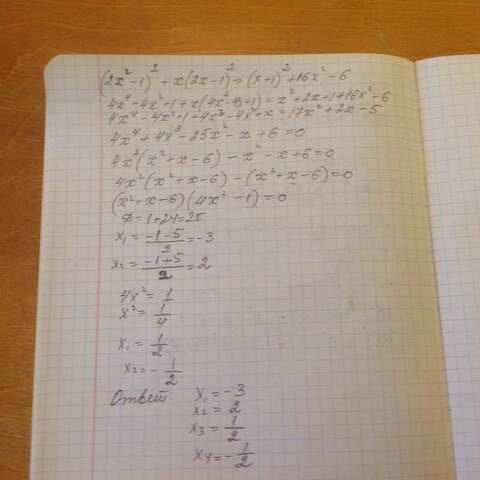 (2x²-1)² + x(2x-1)² = (x+1)² + 16x² - 6
4x⁴ - 4x² + 1 + x(4x² - 4x + 1) = x² + 2x + 1 + 16x² - 6
4x⁴ - 4x² + 1 + 4x³ - 4x² + x = 17x² + 2x - 5
4x⁴ + 4x³ - 25x² - x + 6 = 0
4x²(x² + x - 6) - x² - x + 6 = 0
4x²(x² + x - 6) - (x² + x - 6) = 0
(x² + x - 6)(4x² - 1) = 0
D = 1 + 24 = 25
x₁ = (-1-5)/2 = -3
x₂ = (-1+5)/2 = 2
4x² = 1
x² = 1/4
x₁ = 1/2
x₂ = - 1/2
Ответ: x₁ = -3
x₂ = 2
x₃ = 1/2
x₄ = - 1/2